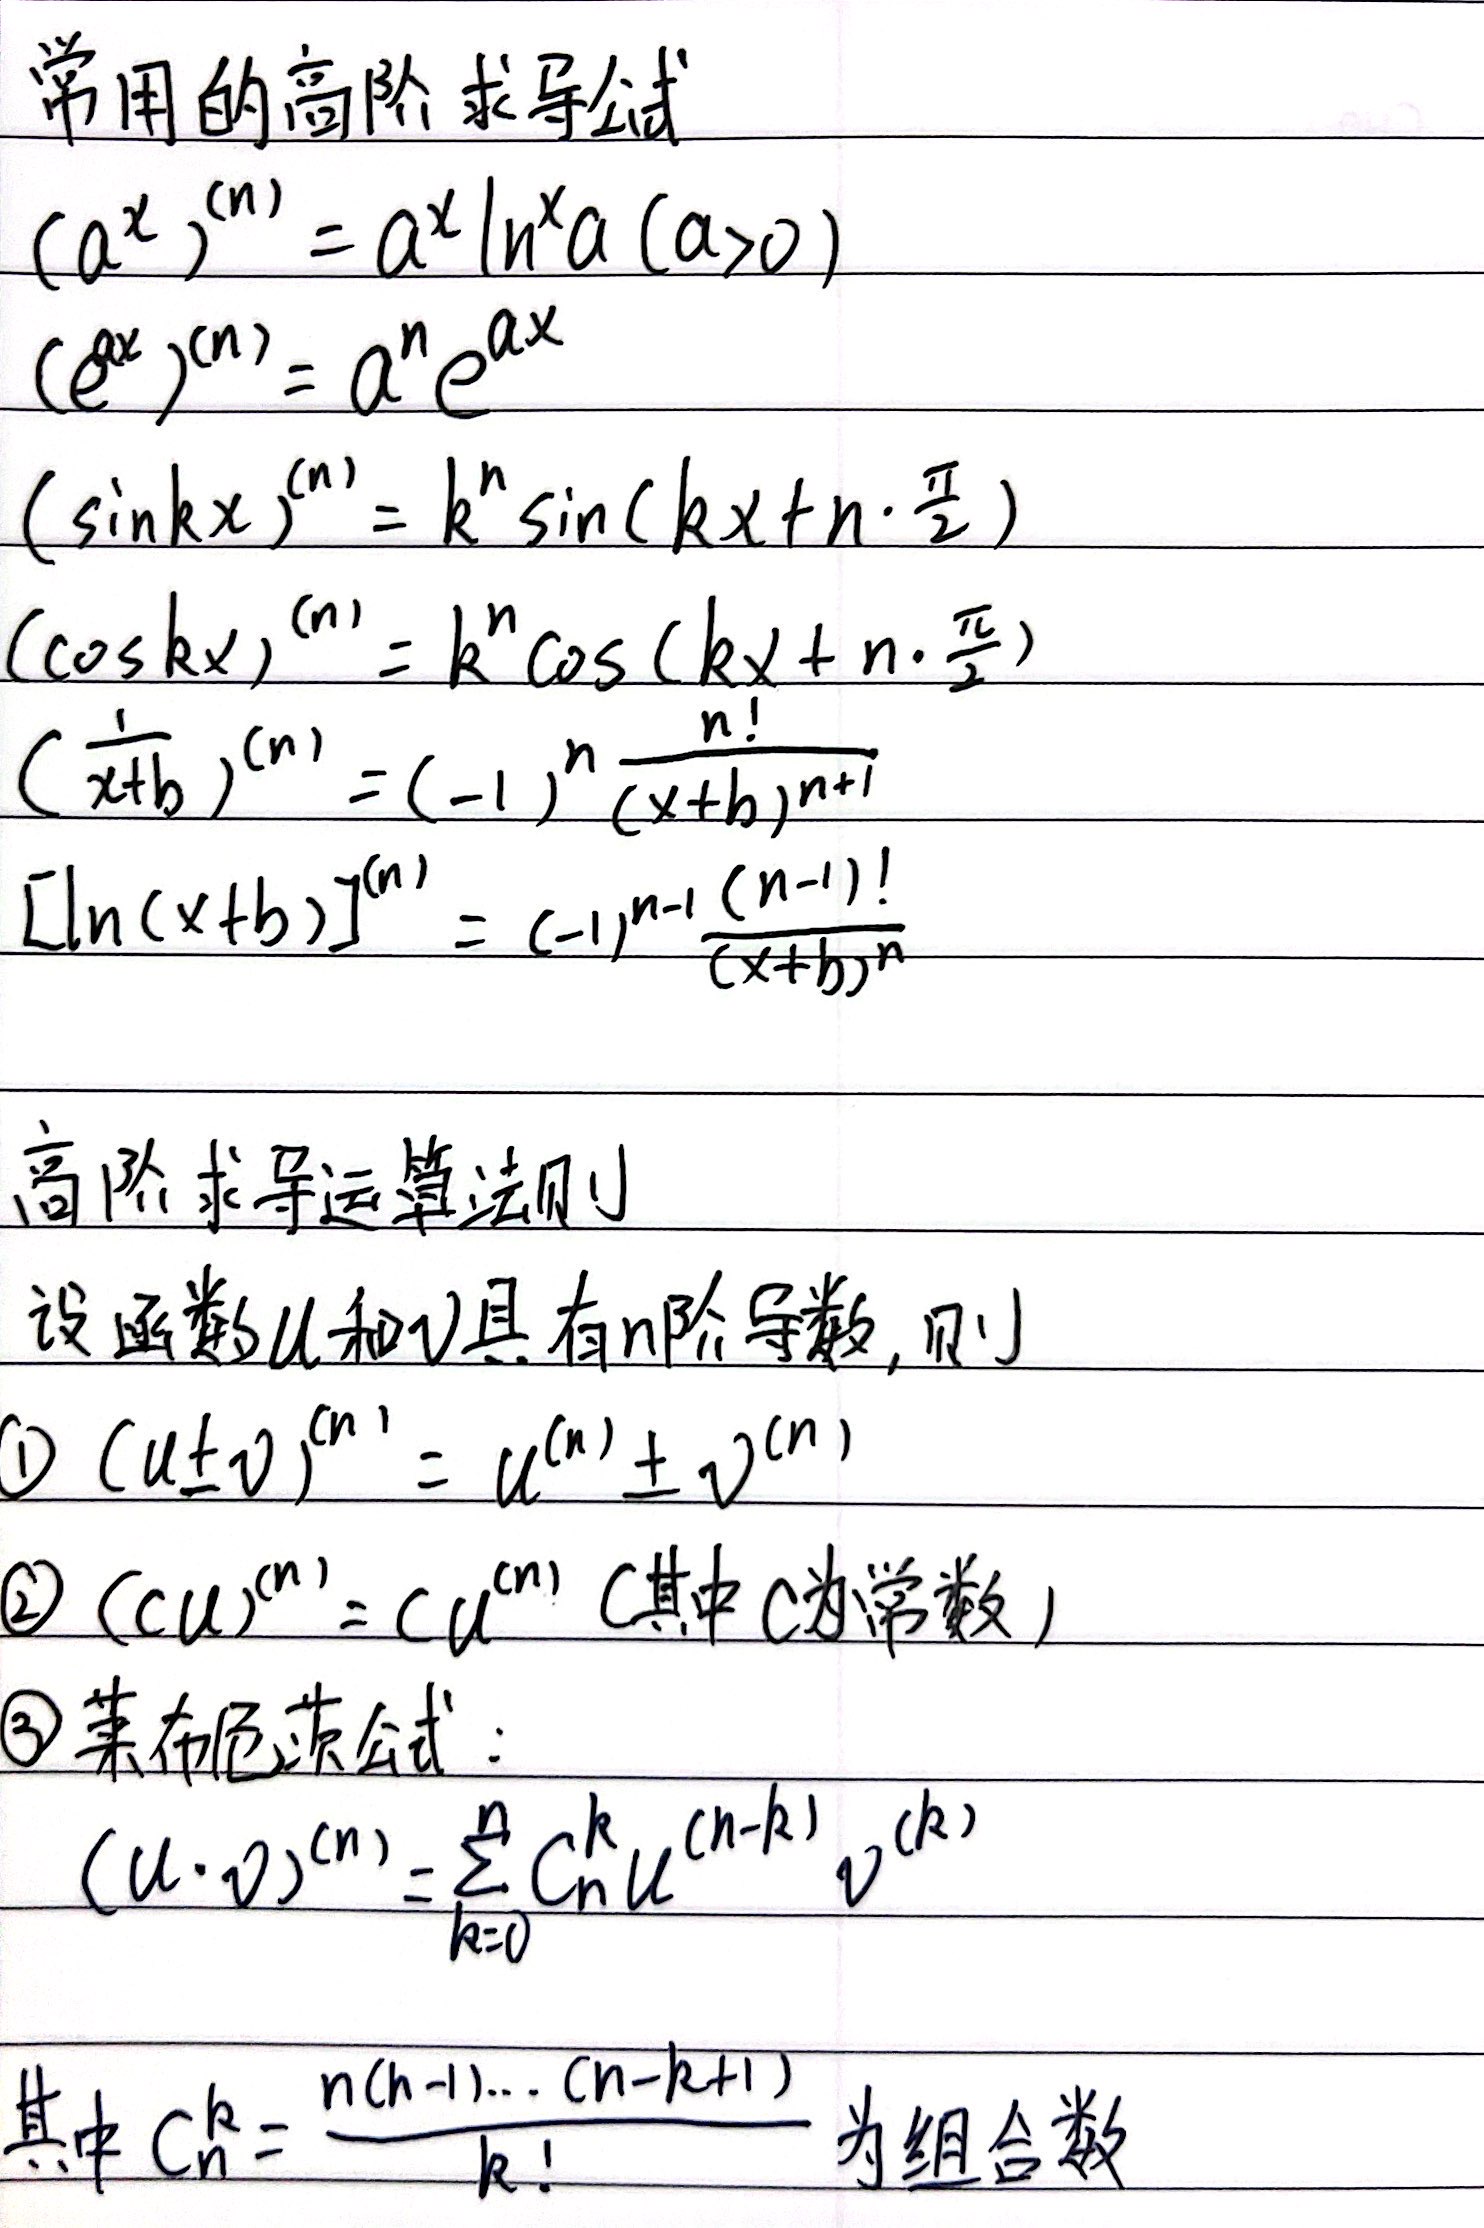 常用的高阶求导公式
(a^x)^(n) = a^x ln^x a (a>0)
(e^ax)^(n) = a^n e^ax
(sinkx)^(n) = k^n sin(kx+n·π/2)
(coskx)^(n) = k^n cos(kx+n·π/2)
(1/(x+b))^(n) = (-1)^n n!/(x+b)^(n+1)
[ln(x+b)]^(n) = (-1)^(n-1) (n-1)!/(x+b)^n
高阶求导运算法则
设函数u和v具有n阶导数,则
① (u±v)^(n) = u^(n) ± v^(n)
② (cu)^(n) = cu^(n) (其中C为常数)
③ 莱布尼茨公式:
(u·v)^(n) = ∑_{k=0}^{n} C_n^k u^(n-k) v^(k)
其中 C_n^k = n(n-1)...(n-k+1)/k! 为组合数